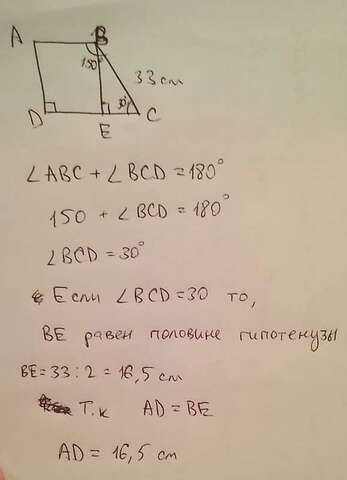 A B
150°
33 cm
30°
D E C
∠ABC + ∠BCD = 180°
150 + ∠BCD = 180°
∠BCD = 30°
Если ∠BCD = 30 то,
BE равен половине гипотенузы
BE = 33 : 2 = 16,5 cm
Т.к AD = BE
AD = 16,5 cm